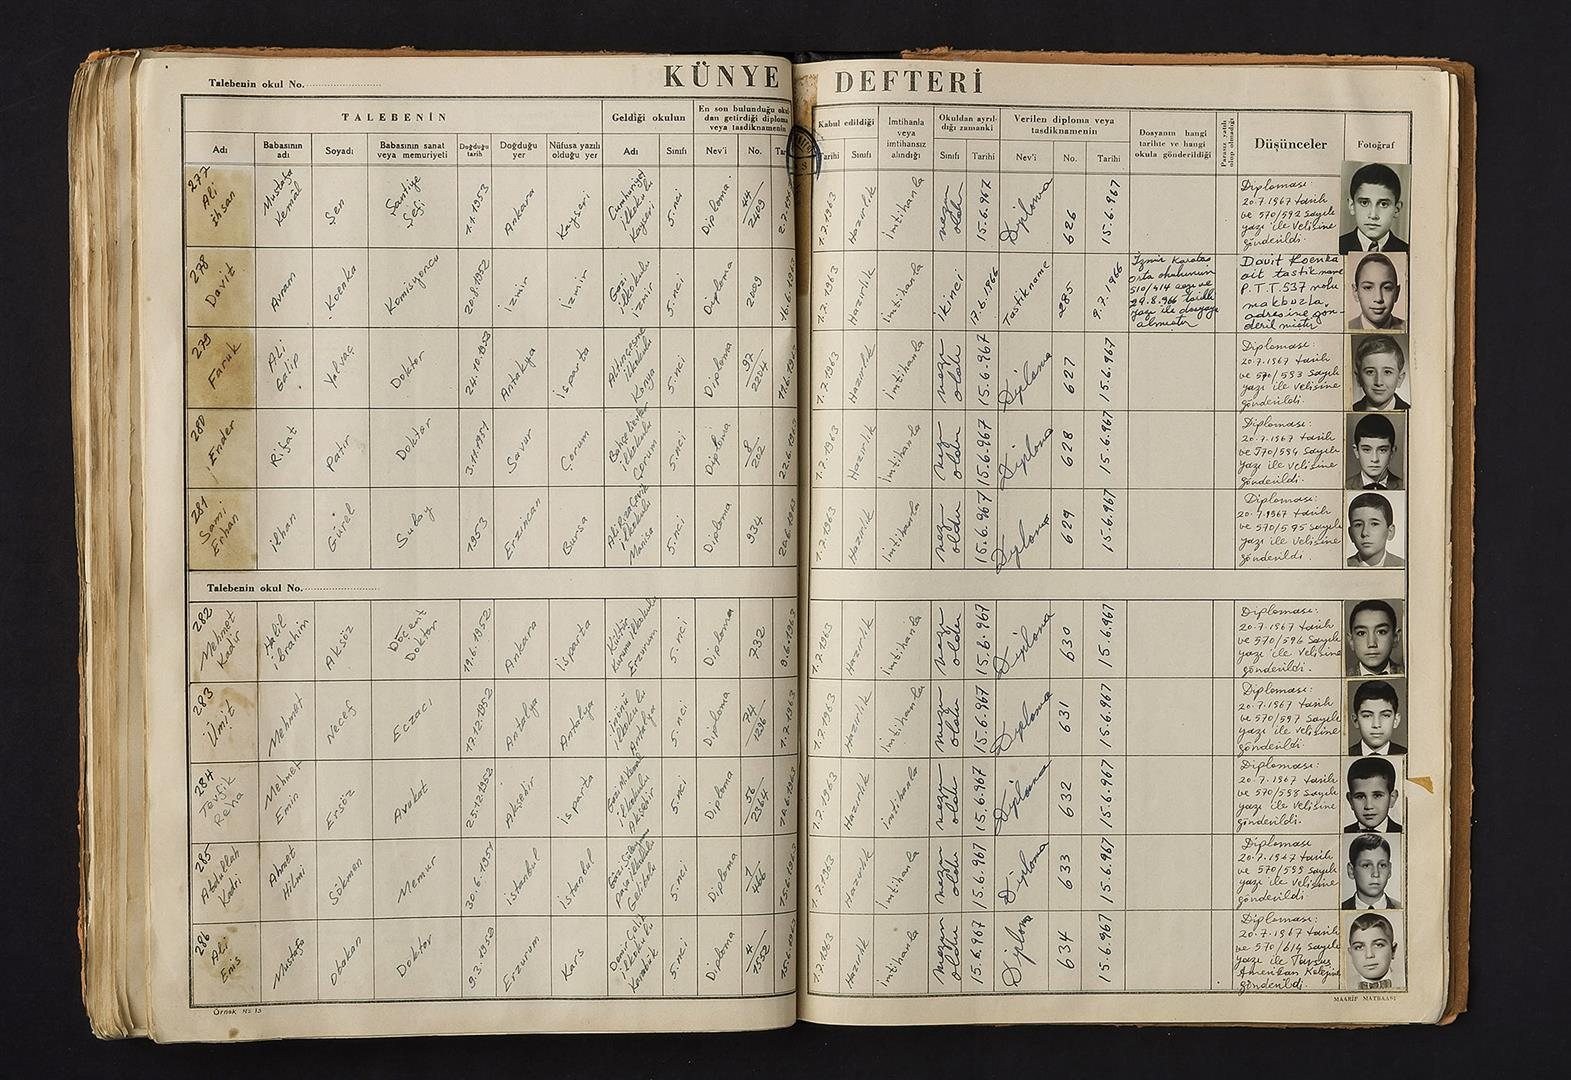 KÜNYE DEFTERİ
Talebenin okul No.
TALEBENİN
Geldiği okulun
En son bulunduğu okul
dan getirdiği diploma
veya tasdiknamenin
Kabul edildiği
İmtihanla
veya
imtihansız
alındığı
Okuldan ayrıl-
dığı zamanki
Verilen diploma veya
tasdiknamenin
Dosyanın hangi
tarihte ve hangi
okula gönderildiği
Parasız yatılı
olup olmadığı
Düşünceler
Fotoğraf
Adı
Babasının
adı
Soyadı
Babasının sanat
veya memuriyeti
Doğduğu
tarih
Doğduğu
yer
Nüfusa yazılı
olduğu yer
Adı
Sınıfı
Nev'i
No.
Tarihi
Sınıfı
Sınıfı
Tarihi
Nev'i
No.
Tarihi
277 Ali İhsan
Mustafa Kemal
Şen
Şantiye Şefi
1.1.1953
Ankara
Kayseri
Cumhuriyet ilkokulu Kayseri
5.nci
Diploma
44/2409
1.7.1963
Hazırlık
İmtihanla
mezun oldu
15.6.967
Diploma
626
15.6.967
Diploması
20.7.1967 tarih
ve 570/592 sayılı
yazı ile velisine
gönderildi.
278 Davit
Avram
Koenka
Komisyoncu
20.8.1952
İzmir
İzmir
Gazi ilkokulu İzmir
5.nci
Diploma
2009
16.6.1963
1.7.1963
Hazırlık
İmtihanla
ikinci
17.6.1966
Tastikname
285
9.7.1966
İzmir Karataş
orta okulunun
510/414 sayı ve
29.8.966 tarihli
yazı ile dosyayı
almıştır
Davit Koenka
ait tastikname
P.T.T. 537 nolu
makbuzla
adresine gön-
derilmiştir
279 Faruk
Ali Galip
Yalvaç
Doktor
24.10.1953
Antakya
Isparta
Altınçeşme ilkokulu Konya
5.nci
Diploma
97/2294
1.7.1963
Hazırlık
İmtihanla
mezun oldu
15.6.967
Diploma
627
15.6.967
Diploması:
20.7.1967 tarih
ve 570/593 sayılı
yazı ile velisine
gönderildi.
280 Ender
Rifat
Patır
Doktor
3.11.1951
Savur
Çorum
Bahçelievler ilkokulu Çorum
5.nci
Diploma
8/202
22.6.1963
1.7.1963
Hazırlık
İmtihanla
mezun oldu
15.6.967
Diploma
628
15.6.967
Diploması:
20.7.1967 tarih
ve 570/594 sayılı
yazı ile velisine
gönderildi.
281 Sami Erhan
İlhan
Gürel
Subay
1953
Erzincan
Bursa
ilkokulu Manisa
5.nci
Diploma
934
1.7.1963
Hazırlık
İmtihanla
mezun oldu
15.6.967
Diploma
629
15.6.967
Diploması:
20.7.1967 tarih
ve 570/595 sayılı
yazı ile velisine
gönderildi.
Talebenin okul No.
282 Mehmet Kadir
Halil İbrahim
Aksöz
Doçent Doktor
19.6.1952
Ankara
Isparta
Kültür Kurumu ilkokulu Erzurum
5.nci
Diploma
732
1.7.1963
Hazırlık
İmtihanla
mezun oldu
15.6.967
Diploma
630
15.6.967
Diploması:
20.7.1967 tarih
ve 570/596 sayılı
yazı ile velisine
gönderildi.
283 Ümit
Mehmet
Necef
Eczacı
17.12.1952
Antalya
Antakya
İnönü ilkokulu Antakya
5.nci
Diploma
74/1286
1.7.1963
1.7.1963
Hazırlık
İmtihanla
mezun oldu
15.6.967
Diploma
631
15.6.967
Diploması:
20.7.1967 tarih
ve 570/597 sayılı
yazı ile velisine
gönderildi.
284 Tevfik Reha
Mehmet Emin
Ersöz
Avukat
25.12.1952
Akşehir
Isparta
Gazi M. Kemal ilkokulu Akşehir
5.nci
Diploma
56/2964
1.7.1963
Hazırlık
İmtihanla
mezun oldu
15.6.967
Diploma
632
15.6.967
Diploması:
20.7.1967 tarih
ve 570/598 sayılı
yazı ile velisine
gönderildi.
285 Abdullah Kadri
Ahmet Hilmi
Sökmen
Memur
30.6.1951
İstanbul
İstanbul
paşa ilkokulu Gelibolu
5.nci
Diploma
1/466
15.6.1963
1.7.1963
Hazırlık
İmtihanla
mezun oldu
15.6.967
Diploma
633
15.6.967
Diploması
20.7.1967 tarih
ve 570/599 sayılı
yazı ile velisine
gönderildi
286 Ali Enis
Mustafa
Obakan
Doktor
9.3.1952
Erzurum
Kars
Demir Çelik ilkokulu Karabük
5.nci
Diploma
4/1552
15.6.1963
1.7.1963
Hazırlık
İmtihanla
mezun oldu
15.6.967
Diploma
634
15.6.967
Diploması:
20.7.1967 tarih
ve 570/614 sayılı
yazı ile Tarsus
Amerikan Kolejine
gönderildi.
Örnek No 15
MAARİF MATBAASI